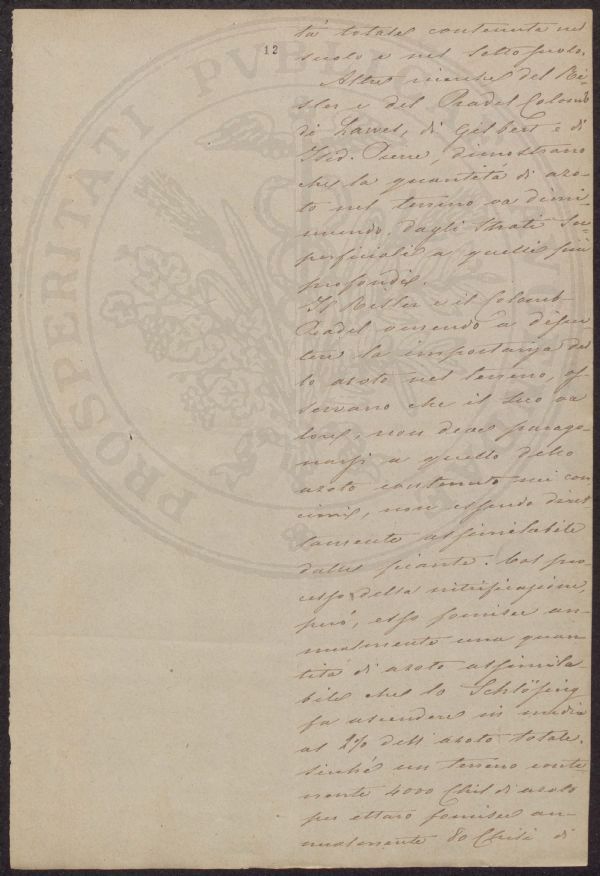 12
tá totale contenuta nel
suolo e nel sotto suolo.
Altre ricerche del Ri-
sler e del Pradel Colomb
di Lawes, di Gilbert e di
Isid. Pierre, dimostrano
che la quantitá di azo-
to nel terreno va dimi-
nuendo dagli strati su-
perficiali a quelli piú
profondi.
Il Risler e il Colomb-
Pradel venendo a discu-
tere la importanza del-
lo azoto nel terreno, os-
servano che il suo va
lore, non deve parago-
narsi a quello dello
azoto contenuto nei con
cimi, non essendo diret
tamente assimilabile
dalle piante. Col pro-
cesso della nitrificazione,
peró, esso fornisce an-
nualmente una quan
titá di azoto assimila-
bile che lo Schlösing
fa ascendere in media
al 2% dell'azoto totale.
sicché un terreno conte
nente 4000 Chil. di azoto
per ettaro fornisce an-
nualmente 80 Chili di
PROSPERITATI PVBLICAE